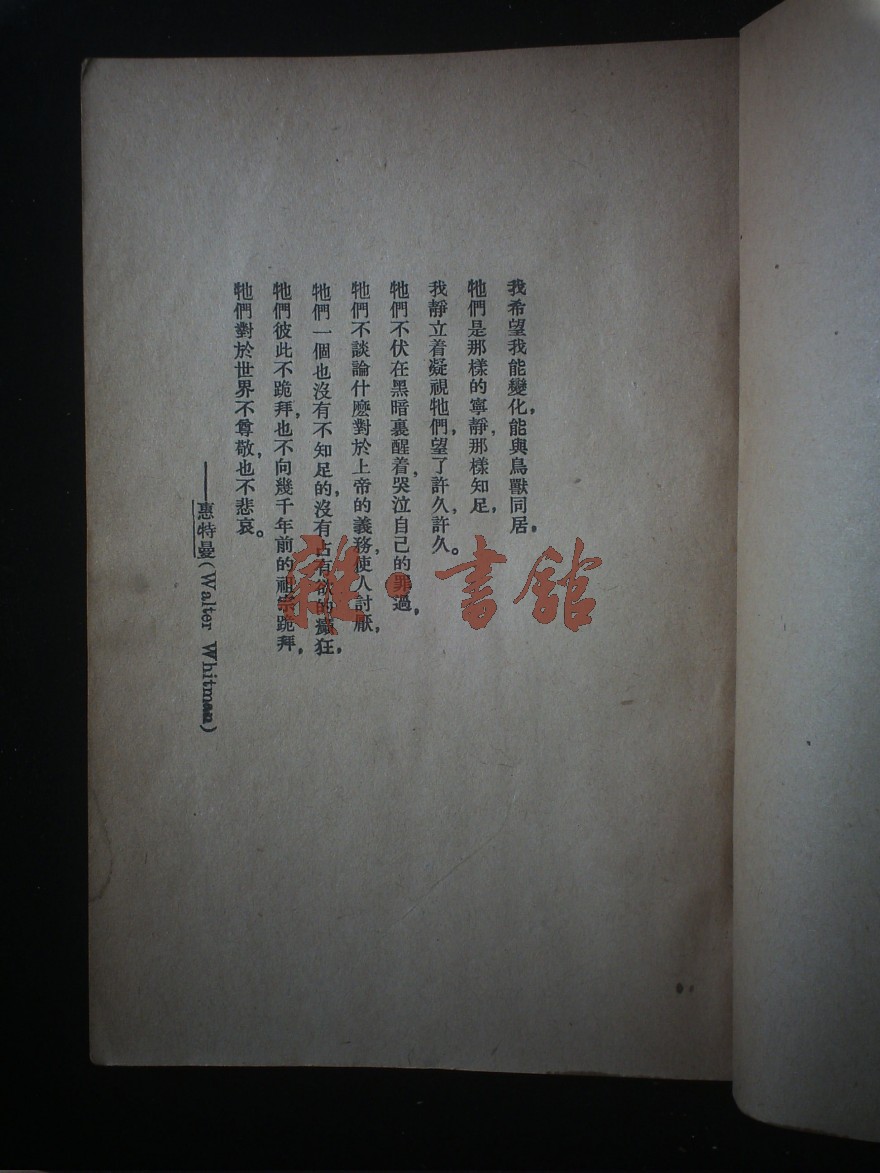 我希望我能變化，能與鳥獸同居，
牠們是那樣的寧靜，那樣知足，
我靜立着凝視牠們，望了許久，許久。
牠們不伏在黑暗裏醒着，哭泣自己的罪過，
牠們不談論什麽對於上帝的義務，使人討厭，
牠們一個也沒有不知足的，沒有占有欲的癲狂，
牠們彼此不跪拜，也不向幾千年前的祖宗跪拜，
牠們對於世界不尊敬，也不悲哀。
——惠特曼（Walter Whitman）
雜·書館